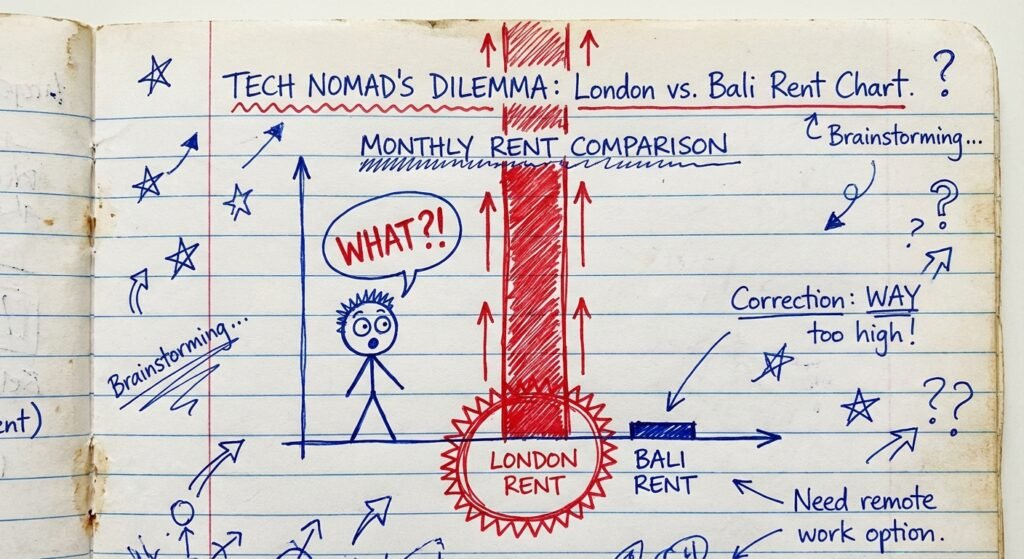 TECH NOMAD'S DILEMMA: London vs. Bali Rent Chart.
Brainstorming...
MONTHLY RENT COMPARISON
WHAT?!
Correction: WAY
too high!
Brainstorming...
LONDON
RENT
BALI
RENT
Need remote
work option.
ent)